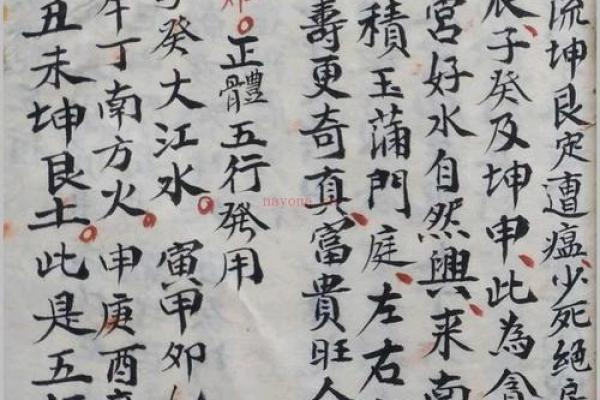 流坤艮定遭瘟少死絕
辰子癸及坤申此為貪
宮好水自然興來南
積玉蒲門庭左右
壽更奇真富貴旺人
正體五行發用
癸大江水寅甲卯
午丁南方火申庚酉
丑未坤艮土此是五
nayona